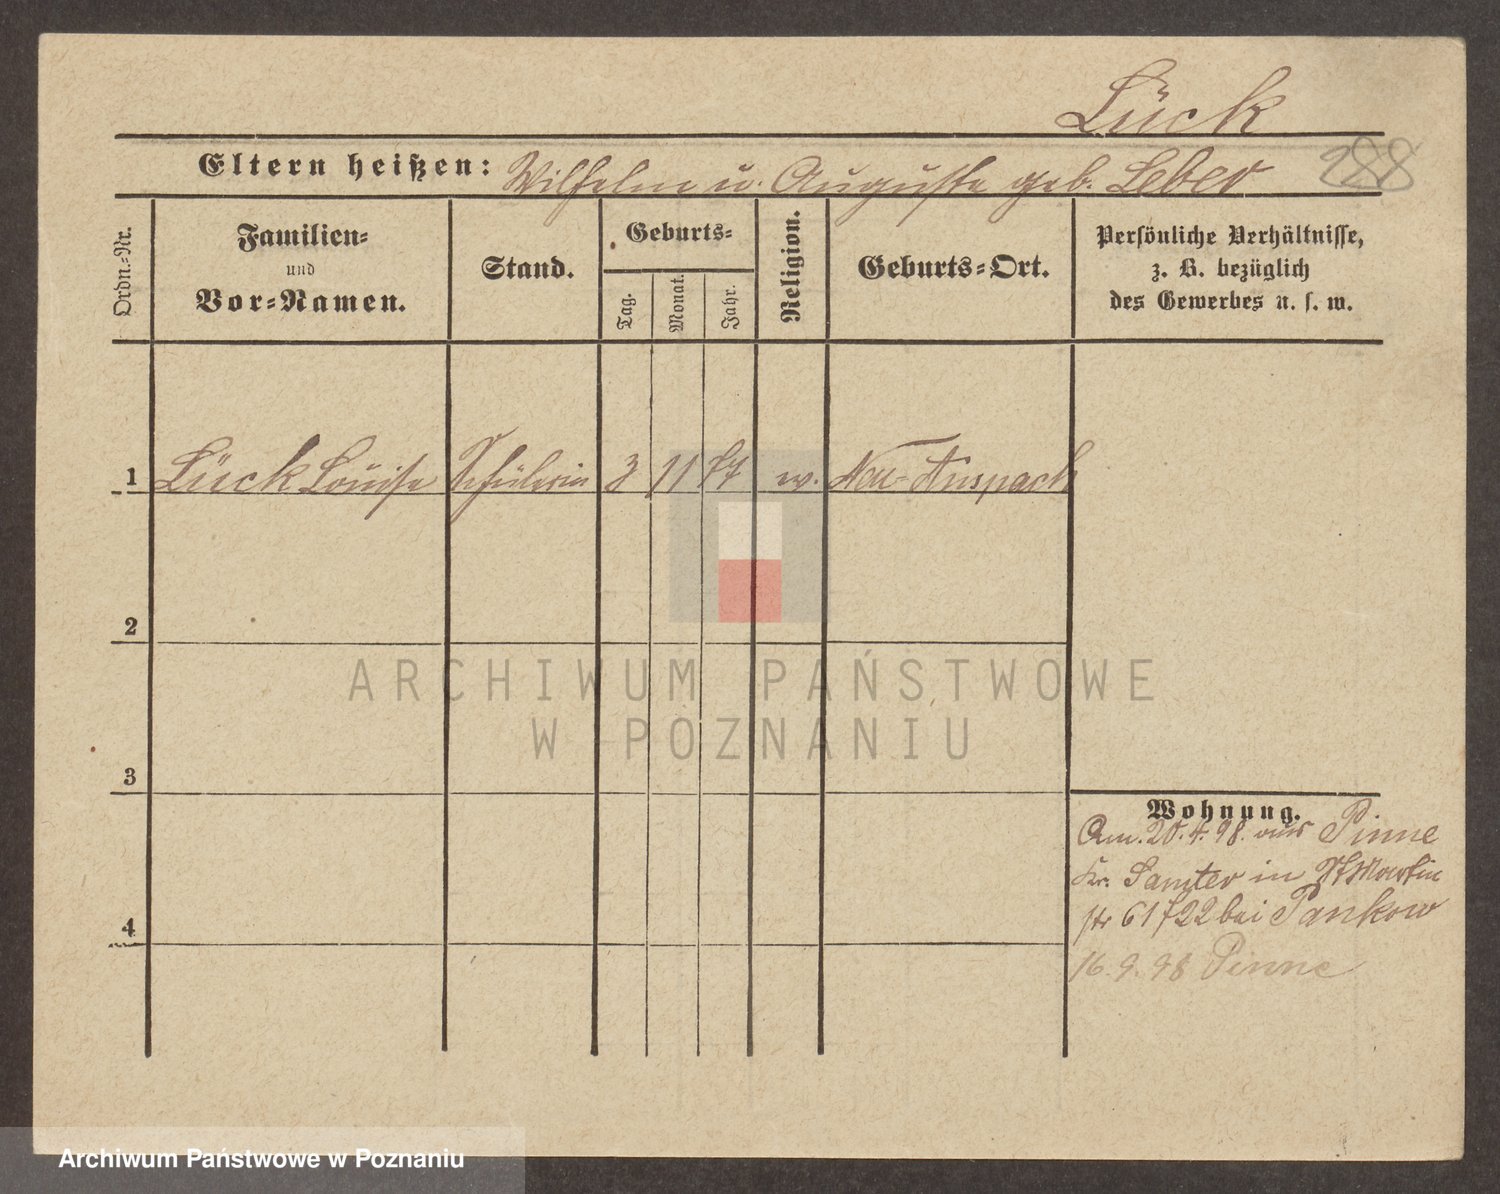 Lück
Eltern heißen: Wilhelm u. Auguste geb. Leber
288
Ordn.=Nr.
Familien=
und
Vor=Namen.
Stand.
Geburts=
Tag.
Monat.
Jahr.
Religion.
Geburts=Ort.
Persönliche Verhältnisse,
z. B. bezüglich
des Gewerbes u. s. w.
1 Lück Louise Schülerin 3 11 87 ev. Neu-Anspach
2
3
4
Wohnung.
Am. 20.4.98. aus Pinne
Kr. Samter in St Martin
str 61 722 bei Pankow
16.9.98 Pinne
ARCHIWUM PAŃSTWOWE
W POZNANIU
Archiwum Państwowe w Poznaniu